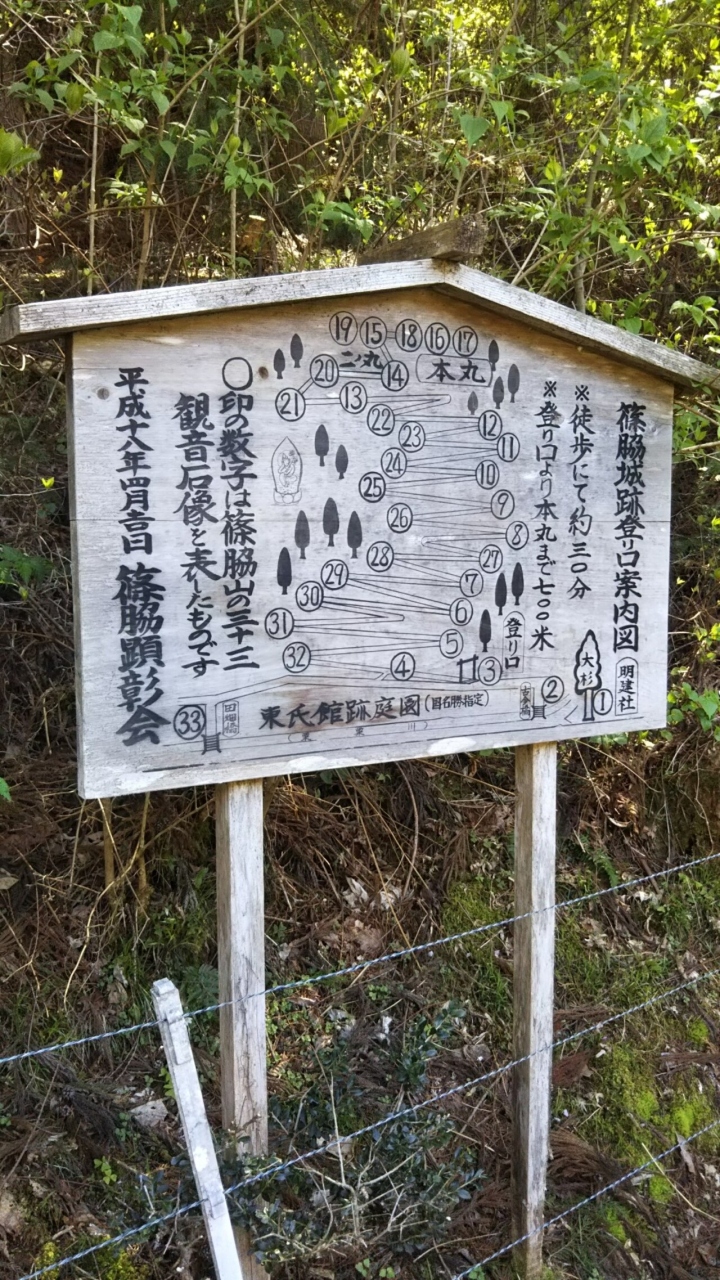 篠脇城跡登り口案内図
※徒歩にて約三〇分
※登り口より本丸まで七〇〇米
⑲ ⑮ ⑱ ⑯ ⑰
二ノ丸
本丸
⑳ ⑭
㉑ ⑬
㉒ ⑫
㉓ ⑪
㉔ ⑩
㉕ ⑨
㉖ ⑧
㉘ ㉗
㉙ ⑦
㉚ ⑥
㉛ ⑤
㉜ ④ ③
登り口
大杉
明建社
② ①
㉝
東氏館跡庭園(国名勝指定)
〇印の数字は篠脇山の三十三
観音石像を表したものです
平成十八年四月吉日 篠脇顕彰会